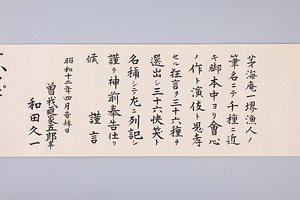 茅海庵一堺漁人ノ
筆名ニテ千種ニ近
キ脚本中ヨリ會心
ノ作ト演伎ト思孝
セル狂言ヲ三十六種ヲ
選出シ三十六快笑ト
名称シテ左ニ列記シ
謹テ神前奉告仕リ
候　謹言
昭和十二年四月吉祥日
曽我廼家五郎事
和田久一